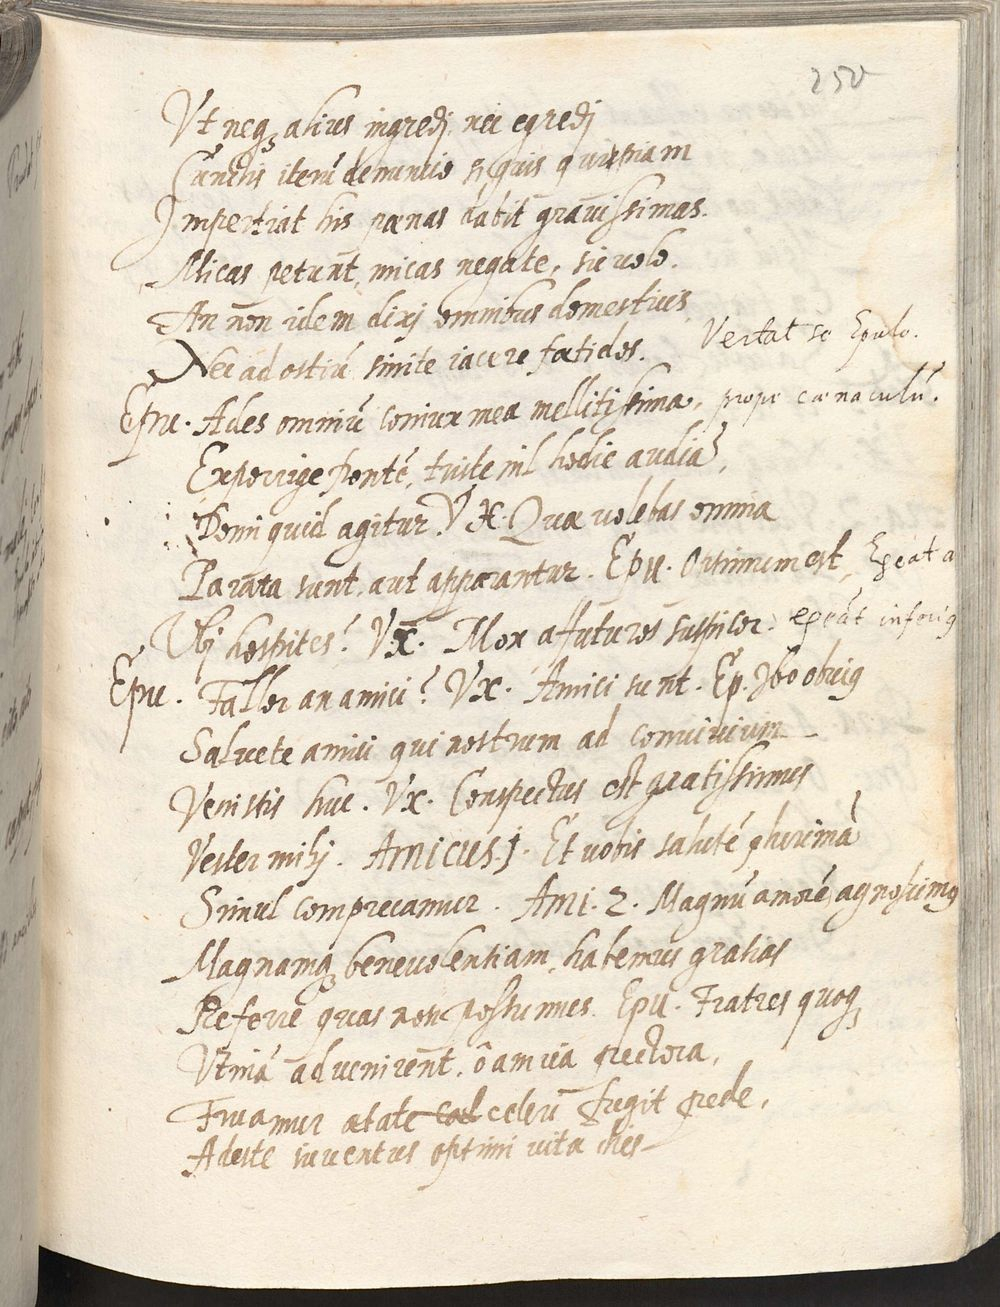 250
Vt neqꝫ alius ingredj, nec egredj
Cūnctis iterū denuntio si quis quispiam
Impertiat his pœnas dabit gravissimas.
Micas petunt, micas negate, sic volo.
An non idem dixj omnibus domesticis
Nec ad ostiū sinite iacere fœtidos. Vertat se Epulo.
Epu. Ades omniū coniux mea mellitissima, prope cœnaculū.
Exporrige frontē, triste nil hodie audiā,
Domi quid agitur? VX. Quæ volebas omnia
Parata sunt, aut apparantur. Epu. Optimum est, Egeat a
Vbj hospites? Vx. Mox affuturos suspicor. eģeāt
Epu. Fallor an amici? Vx. Amici sunt. Ep. Ibo obviā
Salvete amici qui nostrum ad convivium
Venistis huc. Vx. Conspectus est gratissimus
Vester mihj. Amicus.j. Et vobis salutē plurimā
Simul comprecamur. Ami. 2. Magnū amorē agnoscimꝰ
Magnamqꝫ benevolentiam, habemus gratias
Referre quas non possumus. Epu. Fratres quoqꝫ
Vtinā advenirent, ô amica pectora,
Fruamur ætate cel celeri fugit pede,
Adeste iuventus optimi vitæ dies